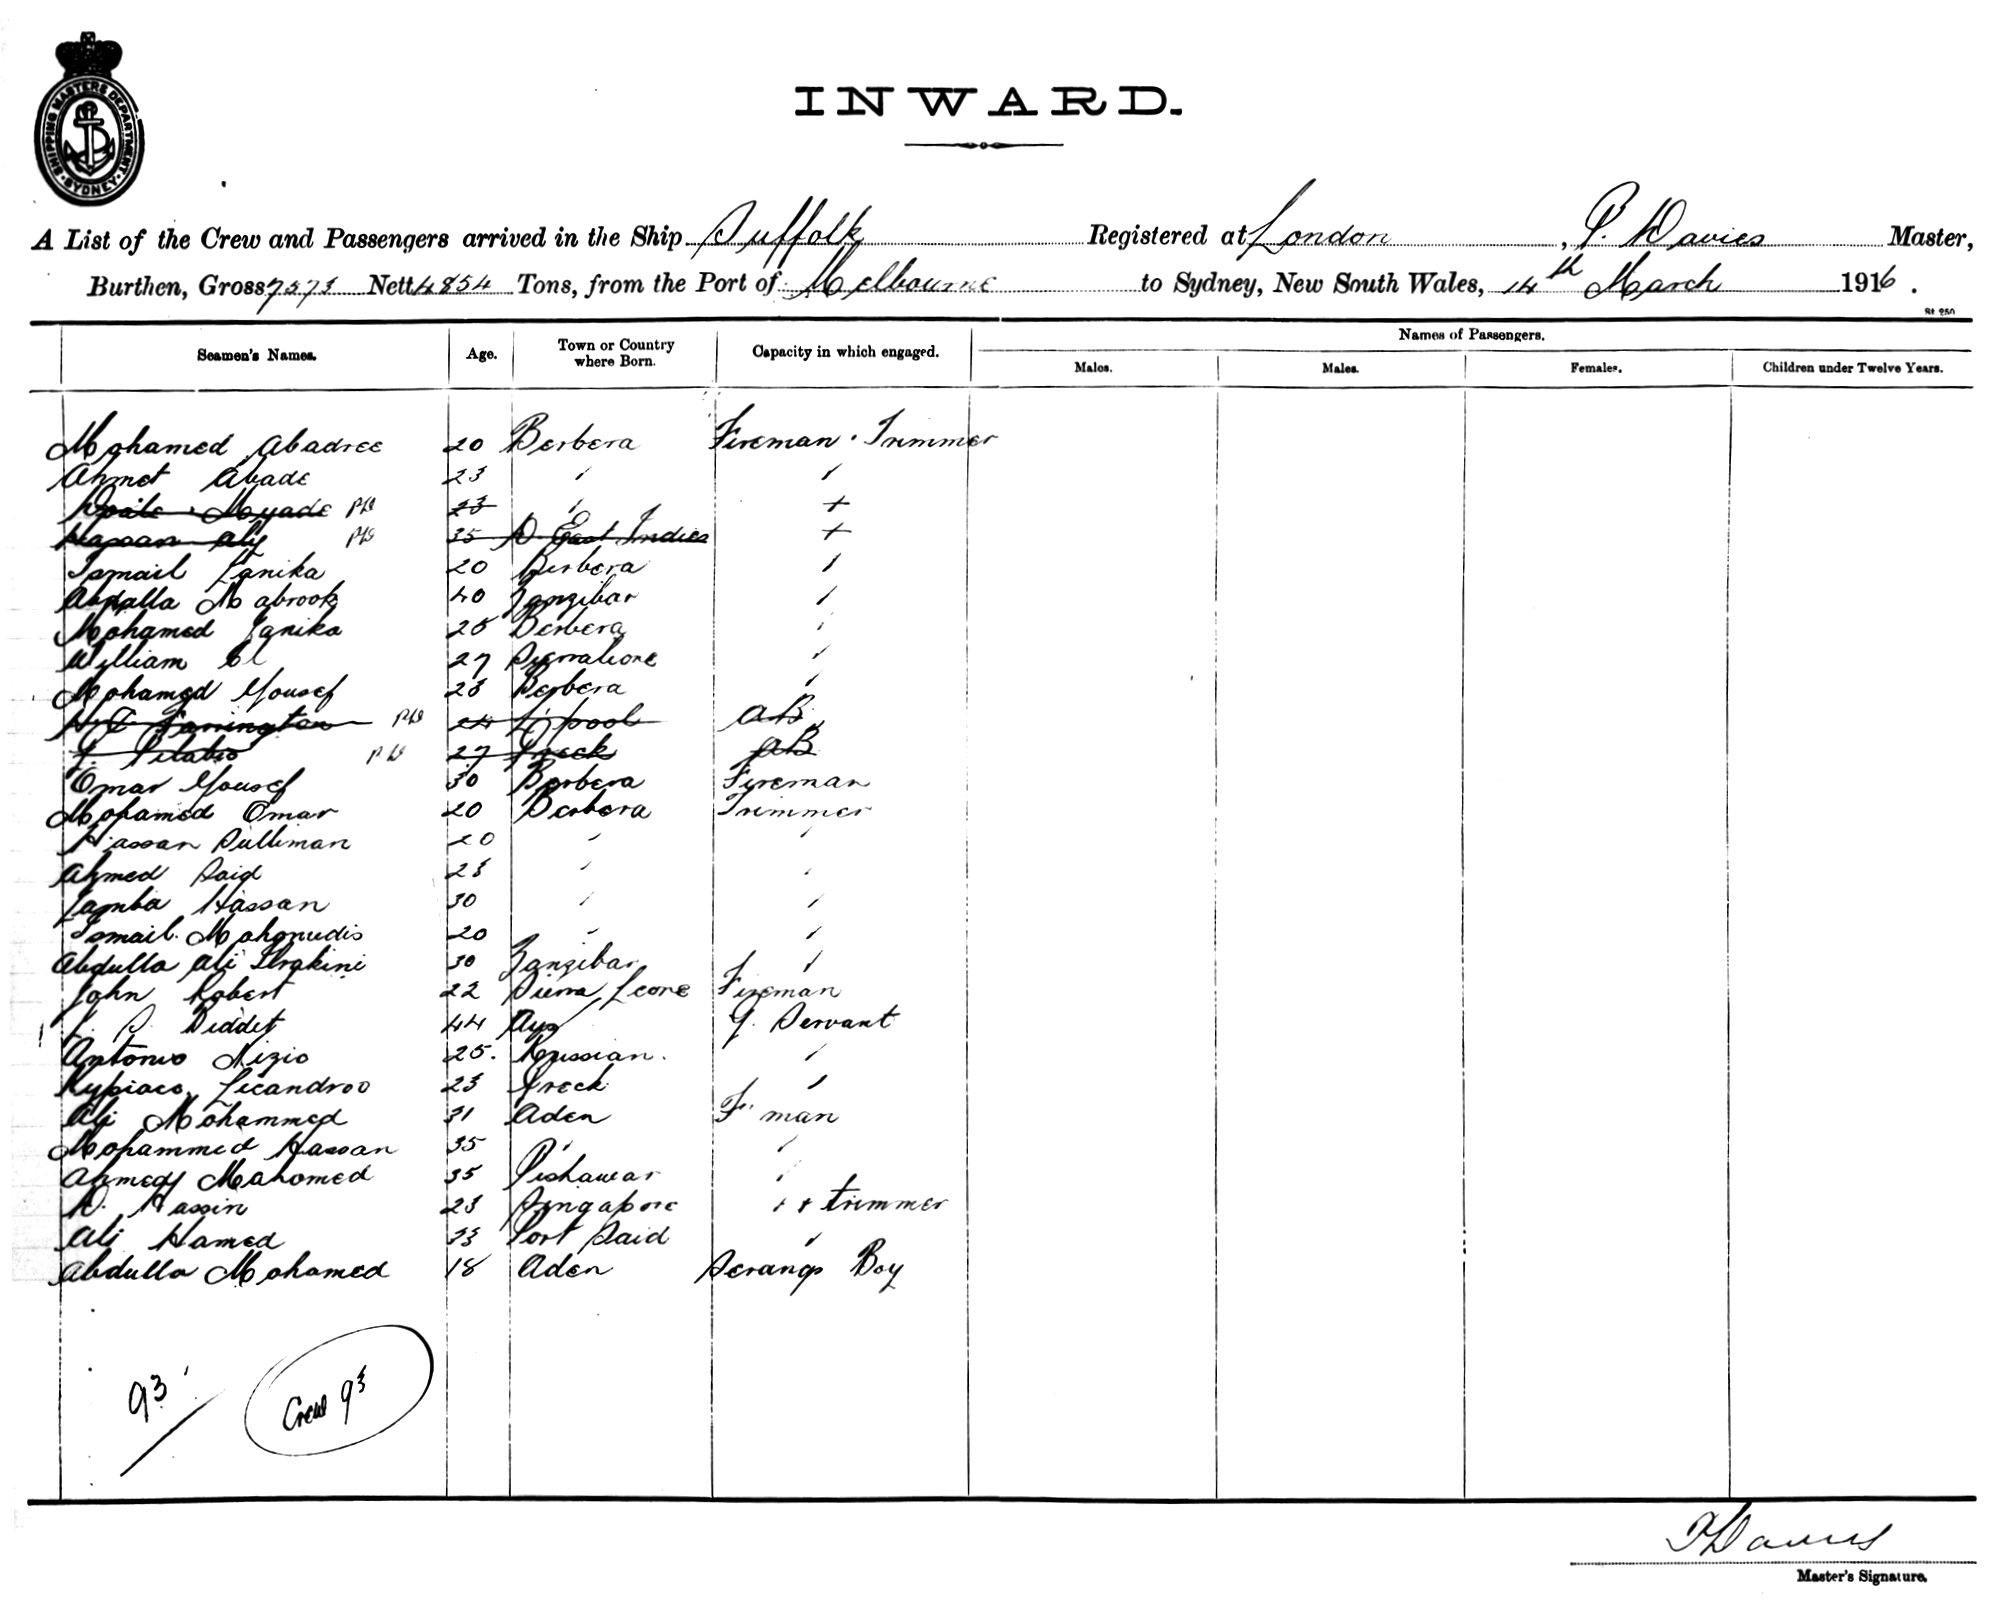 SHIPPING MASTERS DEPARTMENT
SYDNEY
INWARD.
A List of the Crew and Passengers arrived in the Ship Suffolk Registered at London, P. Davies Master,
Burthen, Gross 7573 Nett 4854 Tons, from the Port of Melbourne to Sydney, New South Wales, 14th March 1916.
St 250
Seamen's Names. Age. Town or Country where Born. Capacity in which engaged. Names of Passengers.
Males. Males. Females. Children under Twelve Years.
Mohamed Abadree 20 Berbera Fireman. Trimmer
Ahmet Abade 23 " "
Myade 23 " +
Hassan Aly 35 D East Indies +
Ismail Janika 20 Berbera "
Abdalla Mabrook 40 Zanzibar "
Mohamed Janika 25 Berbera "
William 27 Sierraleone "
Mohamed Yousef 23 Berbera "
Farrington 24 L'pool AB
27 Greek AB
Omar Yousef 30 Berbera Fireman
Mohamed Omar 20 Berbera Trimmer
Hassan Sulliman 20 " "
Ahmed Said 23 " "
Jamba Hassan 30 " "
Ismail 20 " "
Abdulla Ali 30 Zanzibar "
John Robert 22 Sierra Leone Fireman
44 G. Servant
Antonio Nizio 25. Russian. "
Licandroo 23 Greek "
Ali Mohammed 31 Aden F'man
Mohammed Hassan 35 " "
Ahmed Mahomed 35 Pishawar "
Hassin 23 Singapore " & trimmer
Ali Hamed 33 Port Said "
Abdulla Mohamed 18 Aden Serangs Boy
93
Crew 93
P Davies
Master's Signature.